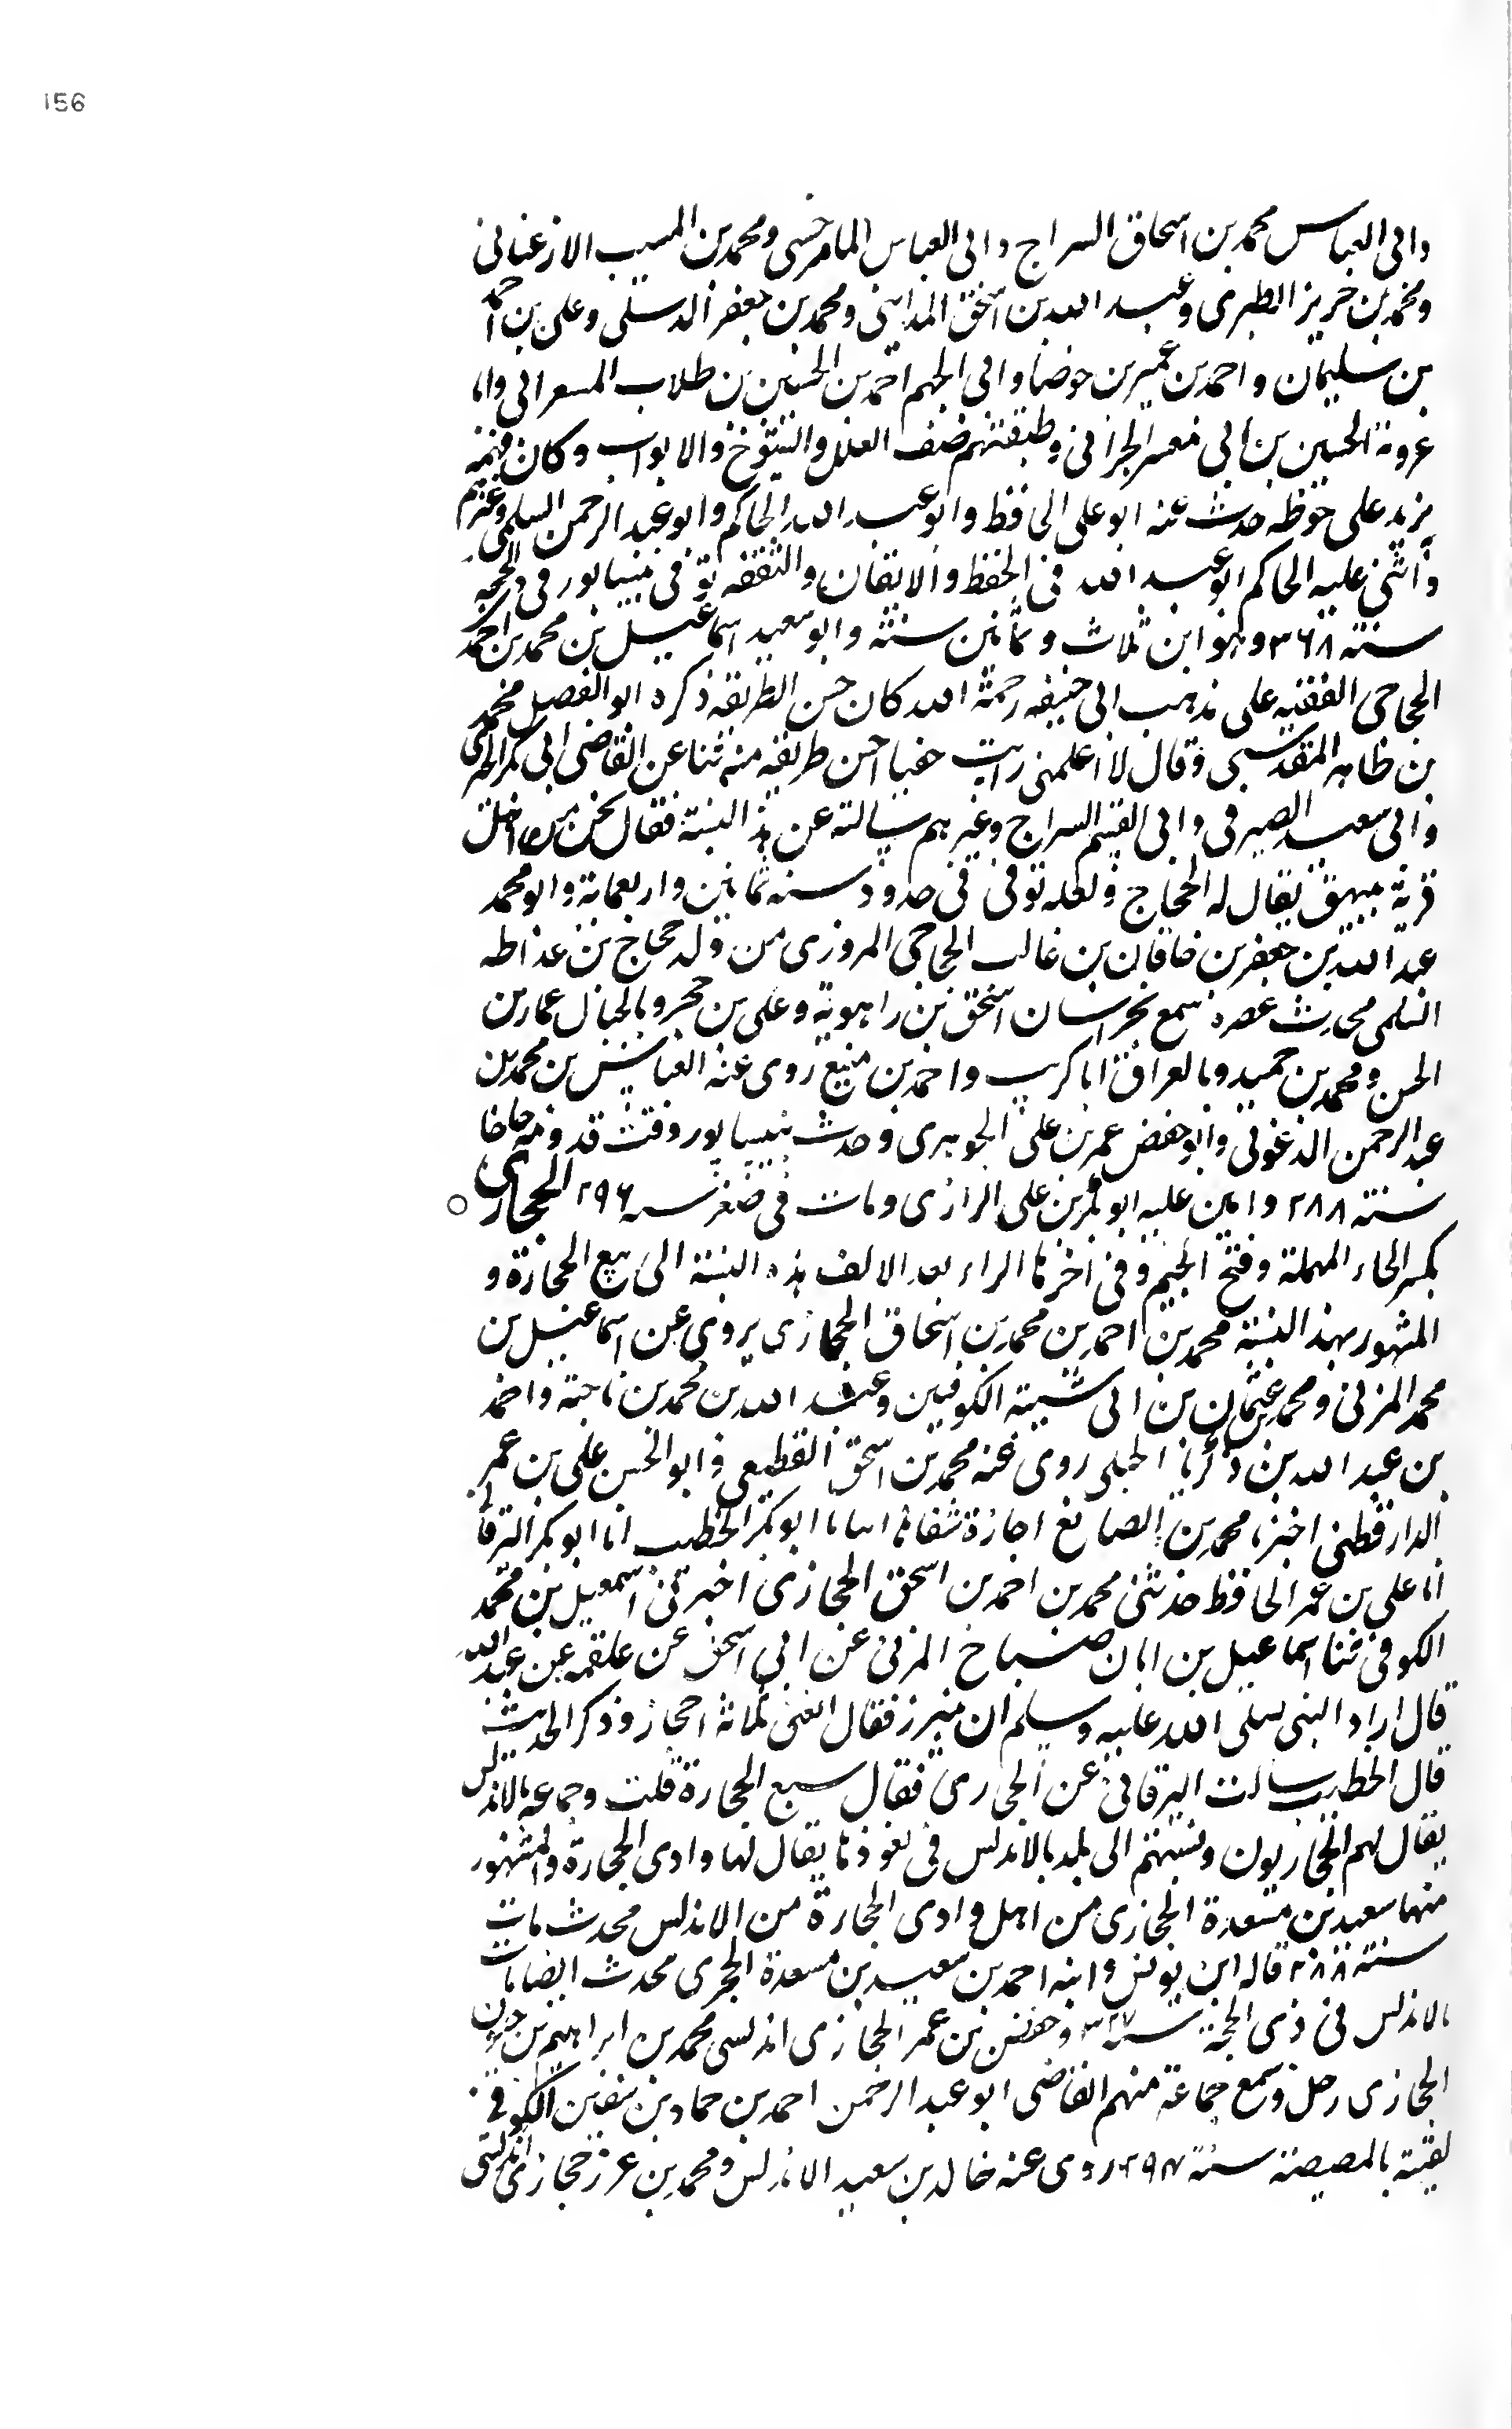 156
وابى العباس محمد بن اسحاق السراج وابى العباس الماسرخسى ومحمد بن المسيب الارغيانى
ومحمد بن جرير الطبرى وعبد الله بن اسحق المداينى ومحمد بن جعفر الدسلى وعلى بن احمد
بن سليمان واحمد بن عمير بن جوصا وابى الجهم احمد بن الحسين بن طلاب المسعرانى وابا
عروبة الحسين بن ابى معسر الحرانى وطبقتهم صنف العلل والشيوخ والابواب وكان فهمه
يزيد على حفظه حدث عنه ابو على الحافظ وابو عبد الله الحاكم وابو عبد الرحمن السلمى وغيرهم
واثنى عليه الحاكم ابو عبد الله فى الحفظ والاتقان والثقفه توفى بنيسابور فى ذى الحجه
سنة ٣٦٨ وهو ابن ثلاث وثمانين سنة وابو سعيد اسماعيل بن محمد بن احمد
الحجاجى الفقيه على مذهب ابى حنيفه رحمة الله كان حسن الطريقه ذكره ابو الفضل محمد
بن طاهر المقدسى وقال لا اعلمنى رايت حنفيا احسن طريقه منه ثنا عن القاضى ابى بكر الحيرى
وابى سعيد الصيرفى وابى القسم السراج وغيرهم سالته عن هذ النسبة فقال نحن من اهل
قرية ببيهق يقال له الحجاج ولعله توفى فى حدود سنه ثمانين واربعماية وابو محمد
عبد الله بن جعفر بن خاقان بن غالب الحجاجى المروزى من ولد حجاج بن علاط
السلمى محدث عصره سمع بخراسان اسحق بن راهوية وعلى بن حجر وبالجبال عمار بن
الحسن ومحمد بن حميد وبالعراق ابا كريب واحمد بن منيع روى عنه العباس بن محمد بن
عبد الرحمن الدغولى وابو حفص عمر بن على الجوهرى وحدث بنيسابور وقت قدومه حاجا
سنة ٢٨٨ وا عليه ابو بكر بن على الرازى ومات فى صفر سنه ٢٩٦ الحجارى
بكسر الحاء المهملة وفتح الجيم وفى اخرها الراء بعد الالف هذه النسبة الى بيع الحجارة و
المشهور بهذ النسبة محمد بن احمد بن محمد بن اسحاق الحجارى يروى عن اسماعيل بن
محمد المزنى ومحمد عثمان بن ابى شيبة الكوفيين وعبد الله بن محمد بن ناجية واحمد
بن عبد الله بن زكريا الجبلى روى عنه محمد بن اسحق القطيعى وابو الحسن على بن عمر
الدارقطنى اخبرنا محمد بن الصايغ اجازة شفاها انبانا ابو بكر الخطيب انا ابو بكر البرقانى
انا على بن عمر الحافظ حدثنى محمد بن احمد بن اسحق الحجازى اخبرنى اسمعيل بن محمد
الكوفى ثنا اسماعيل بن ابان صباح المزنى عن ابى اسحق عن علقمه عن عبد الله
قال اراد النبى صلى الله عليه وسلم ان يتبرز فقال ابغنى ثلاثة احجار وذكر الحديث
قال الخطيب سالت البرقانى عن الحجارى فقال يبيع الحجارة قلت وجماعه بالاندلس
يقال لهم الحجاريون ونسبتهم الى بلد بالاندلس فى ثغورها يقال لها وادى الحجارة والمشهور
منها سعيد بن مسعدة الحجازى من اهل وادى الحجارة من الاندلس محدث مات
سنة ٢٨٨ قاله ابن يونس وابنه احمد بن سعيد بن مسعدة الحجرى محدث ايضا مات
بالاندلس فى ذى الحجة سنة ٣٢٧ وحفص بن عمر الحجازى اندلسى محمد بن ابراهيم بن حيون
الحجازى رحل وسمع جماعة منهم القاضى ابو عبد الرحمن احمد بن حماد بن سفين الكوفى
لقيته بالمصيصة سنة ٢٩٧ روى عنه خالد بن سعيد الاندلس ومحمد بن عزز حجازى اندلسى